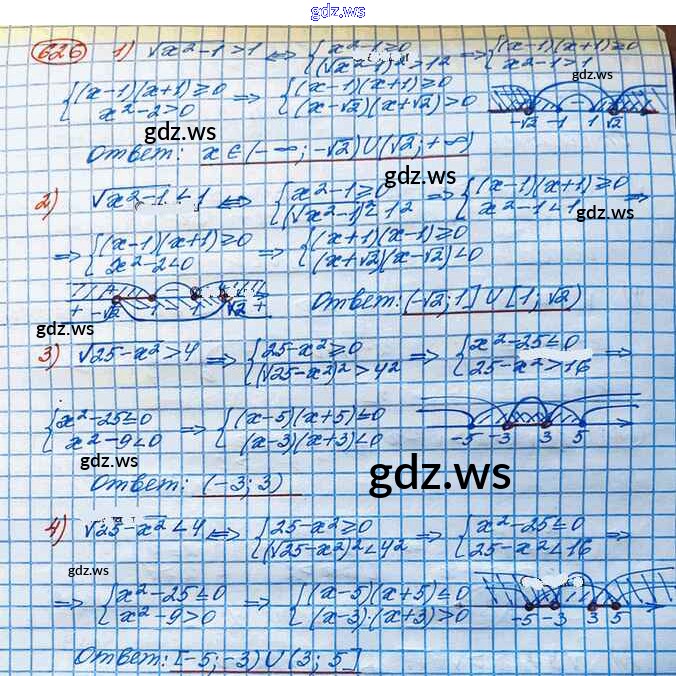 gdz.ws
626 1) √x²-1 > 1 ⇔ {x²-1≥0 {(√x²-1)²>1² ⇒ {(x-1)(x+1)≥0 {x²-1>1
gdz.ws
{(x-1)(x+1)≥0 {x²-2>0 ⇒ {(x-1)(x+1)≥0 {(x-√2)(x+√2)>0 -√2 -1 - 1 √2
gdz.ws
Ответ: x∈(-∞; -√2)∪(√2; +∞)
gdz.ws
2) √x²-1 < 1 ⇔ {x²-1≥0 {(√x²-1)²<1² ⇒ {(x-1)(x+1)≥0 {x²-1<1 ⇒
gdz.ws
⇒ {(x-1)(x+1)≥0 {x²-2<0 ⇒ {(x+1)(x-1)≥0 {(x+√2)(x-√2)<0
+ -√2 -1 - 1 √2 +
Ответ: (-√2; 1] ∪ [1; √2)
gdz.ws
3) √25-x² > 4 ⇒ {25-x²≥0 {(√25-x²)²>4² ⇒ {x²-25≤0 {25-x²>16 ⇒
{x²-25≤0 {x²-9<0 ⇒ {(x-5)(x+5)≤0 {(x-3)(x+3)<0 -5 -3 3 5
gdz.ws
Ответ: (-3; 3)
gdz.ws
4) √25-x² < 4 ⇔ {25-x²≥0 {(√25-x²)²<4² ⇒ {x²-25≤0 {25-x²<16 ⇒
gdz.ws
gdz.ws
⇒ {x²-25≤0 {x²-9>0 ⇒ {(x-5)(x+5)≤0 {(x-3)·(x+3)>0 -5 -3 3 5
Ответ: [-5; -3) ∪ (3; 5]